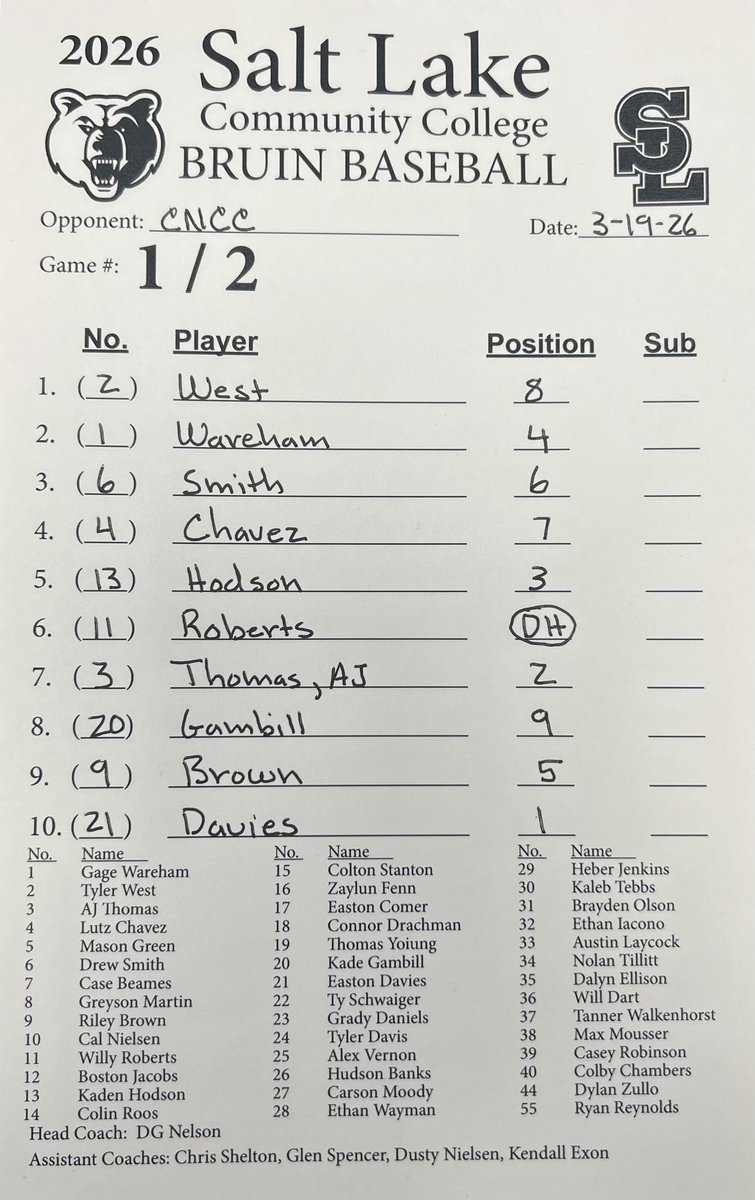 2026 Salt Lake
Community College
BRUIN BASEBALL
SL
Opponent: CNCC Date: 3-19-26
Game #: 1 / 2
No. Player Position Sub
1. (2) West 8
2. (1) Wareham 4
3. (6) Smith 6
4. (4) Chavez 7
5. (13) Hodson 3
6. (11) Roberts DH
7. (3) Thomas, AJ 2
8. (20) Gambill 9
9. (9) Brown 5
10. (21) Davies 1
No. Name No. Name No. Name
1 Gage Wareham 15 Colton Stanton 29 Heber Jenkins
2 Tyler West 16 Zaylun Fenn 30 Kaleb Tebbs
3 AJ Thomas 17 Easton Comer 31 Brayden Olson
4 Lutz Chavez 18 Connor Drachman 32 Ethan Iacono
5 Mason Green 19 Thomas Yoiung 33 Austin Laycock
6 Drew Smith 20 Kade Gambill 34 Nolan Tillitt
7 Case Beames 21 Easton Davies 35 Dalyn Ellison
8 Greyson Martin 22 Ty Schwaiger 36 Will Dart
9 Riley Brown 23 Grady Daniels 37 Tanner Walkenhorst
10 Cal Nielsen 24 Tyler Davis 38 Max Mousser
11 Willy Roberts 25 Alex Vernon 39 Casey Robinson
12 Boston Jacobs 26 Hudson Banks 40 Colby Chambers
13 Kaden Hodson 27 Carson Moody 44 Dylan Zullo
14 Colin Roos 28 Ethan Wayman 55 Ryan Reynolds
Head Coach: DG Nelson
Assistant Coaches: Chris Shelton, Glen Spencer, Dusty Nielsen, Kendall Exon